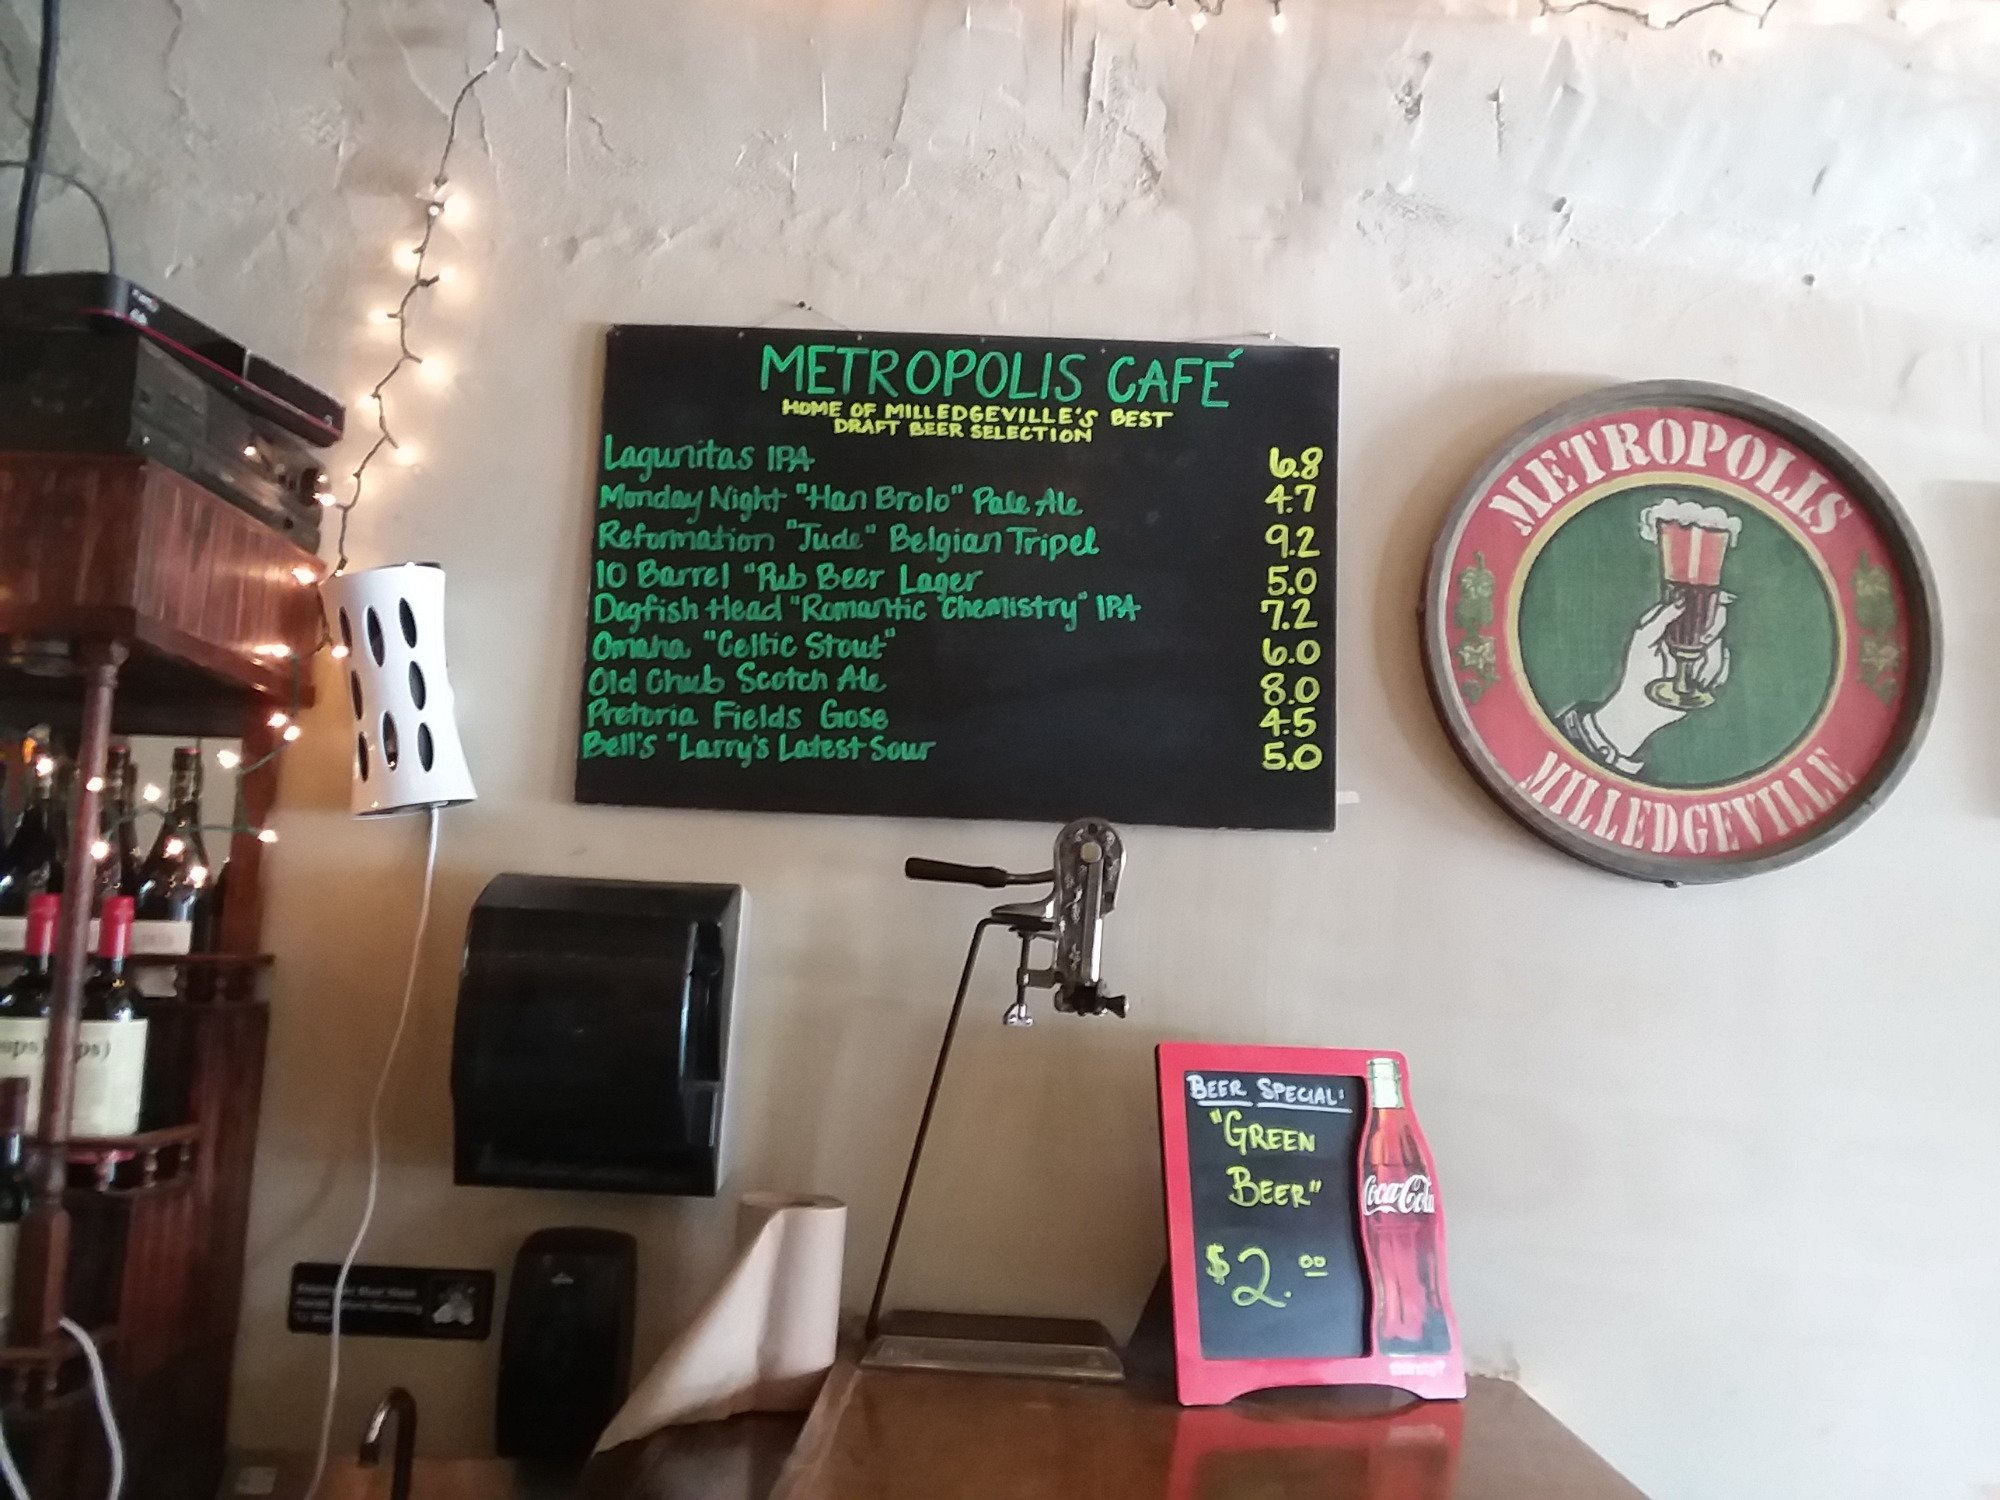 METROPOLIS CAFÉ
HOME OF MILLEDGEVILLE'S BEST
DRAFT BEER SELECTION
Lagunitas IPA 6.8
Monday Night "Han Brolo" Pale Ale 4.7
Reformation "Jude" Belgian Tripel 9.2
10 Barrel "Pub Beer Lager 5.0
Dogfish Head "Romantic "Chemistry" IPA 7.2
Omaha "Celtic Stout" 6.0
Old Chub Scotch Ale 8.0
Pretoria Fields Gose 4.5
Bell's "Larry's Latest Sour 5.0
METROPOLIS
MILLEDGEVILLE
BEER SPECIAL:
"GREEN
BEER"
$2.00
Coca-Cola